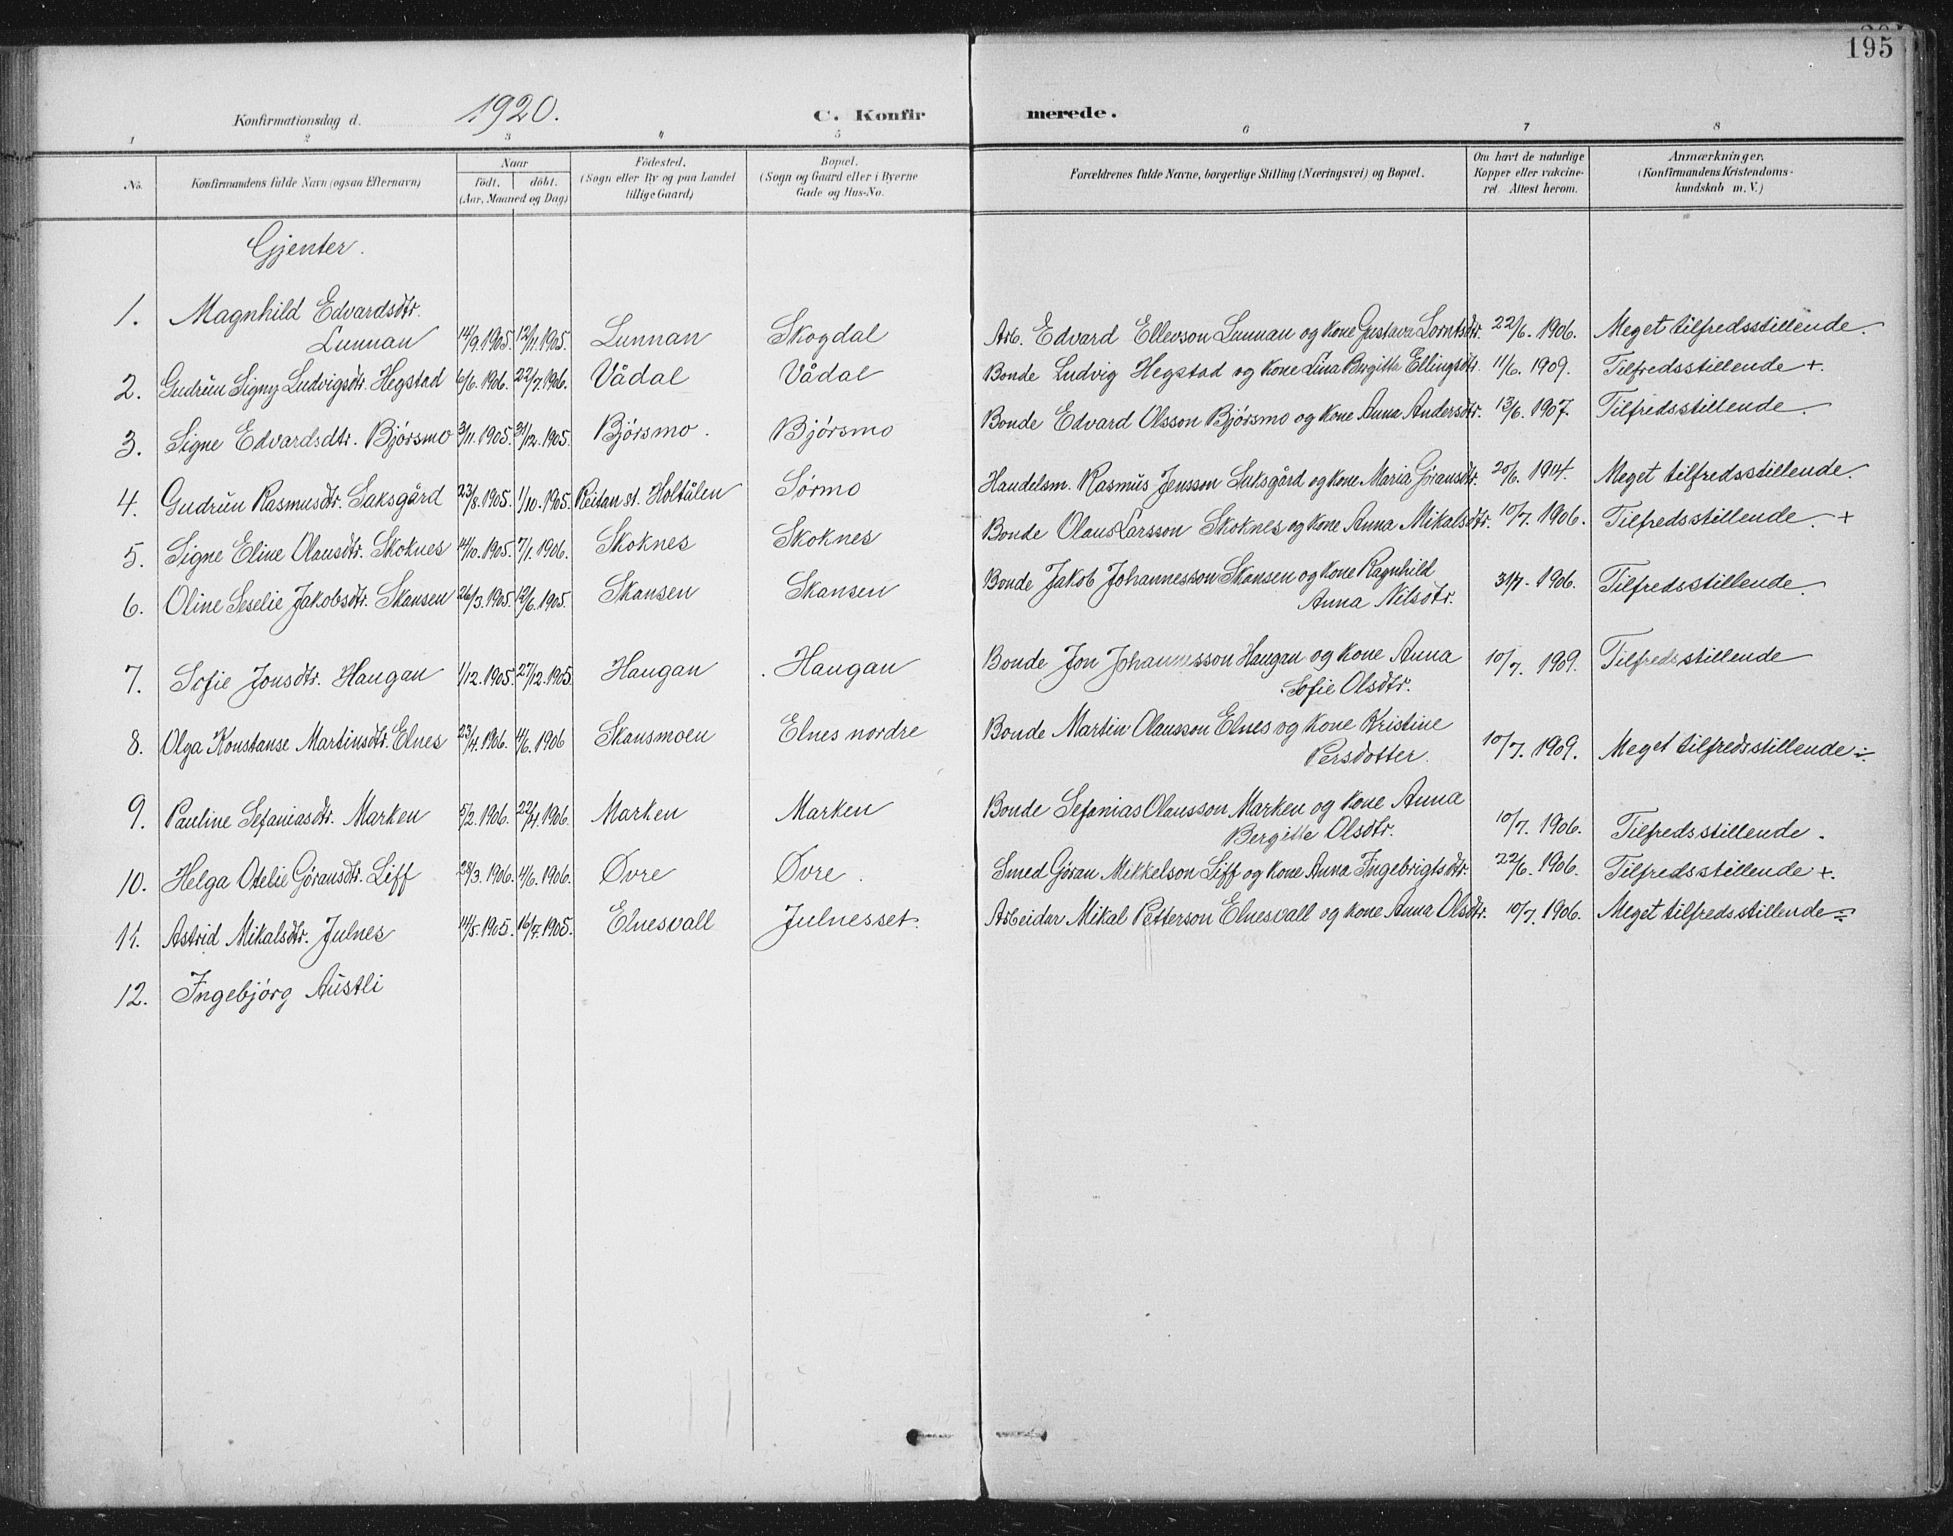 195
Konfirmationsdag d. 1920. C. Konfirmerede.
1 2 3 4 5 6 7 8
No. Konfirmandens fulde Navn (ogsaa Efternavn) Naar født. døbt. (Aar, Maaned og Dag) Fødested. (Sogn eller By og paa Landet tillige Gaard) Bopæl. (Sogn og Gaard eller i Byerne Gade og Hus-No. Forældrenes fulde Navne, borgerlige Stilling (Næringsvei) og Bopæl. Om havt de naturlige Kopper eller vaccineret. Attest herom. Anmærkninger. (Konfirmandens Kristendomskundskab m. V.)
Gjenter.
1. Magnhild Edvardsdtr.
Lunnan 14/9.1905. 12/11.1905. Lunnan Skogdal Arb. Edvard Ellevson Lunnan og kone Gustava Lorntsdtr. 22/6. 1906. Meget tilfredsstillende.
2. Gudrun Signy Ludvigsdtr. Hegstad 6/6. 1906. 22/7.1906. Vådal Vådal Bonde Ludvig Hegstad og kone Lina Birgitte Ellingsdtr. 11/6. 1909. Tilfredsstillende +.
3. Signe Edvardsdtr. Bjørsmo 3/11.1905. 31/12.1905. Bjørsmo. Bjørsmo Bonde Edvard Olsson Bjørsmo og kone Anna Andersdtr. 13/6. 1907. Tilfredsstillende.
4. Gudrun Rasmusdtr. Saksgård 23/8.1905. 1/10.1905. Reitan st. Holtålen Sørmo Handelsm. Rasmus Jensson Saksgård og kone Maria Gøransdtr. 20/6. 1914. Meget tilfredsstillende.
5. Signe Eline Olausdtr. Skoknes 14/10.1905. 7/1.1906. Skoknes Skoknes Bonde Olaus Larsson Skoknes og kone Anna Mikalsdtr. 10/7. 1906. Tilfredsstillende. +
6. Oline Seselie Jakobsdtr. Skansen 26/3.1905. 12/6.1905. Skansen Skansen Bonde Jakob Johannesson Skansen og kone Ragnhild
Anna Nilsdtr. 31/7. 1906. Tilfredsstillende.
7. Sofie Jonsdtr. Haugan 1/12.1905. 27/12.1905. Haugan Haugan Bonde Jon Johannesson Haugan og kone Anna
Sofie Olsdtr. 10/7. 1909. Tilfredsstillende
8. Olga Konstanse Martinsdtr. Elnes 23/4.1906. 4/6.1906 Skansmoen Elnes nordre Bonde Martin Olausson Elnes og kone Kristine
Persdotter. 10/7. 1909. Meget tilfredsstillende ÷.
9. Pauline Sefaniasdtr. Marken 5/2.1906. 22/4.1906. Marken Marken Bonde Sefanias Olausson Marken og kone Anna
Bergitte Olsdtr. 10/7. 1906. Tilfredsstillende.
10. Helga Otelie Gøransdtr. Liff 28/3.1906. 4/6.1906. Øvre Øvre. Smed Gøran Mikkelson Liff og kone Anna Ingebrigtsdtr. 22/6. 1906. Tilfredsstillende +.
11. Astrid Mikalsdtr. Julnes 14/5.1905. 16/7.1905. Elnesvall Julnesset. Arbeidar Mikal Petterson Elnesvall og kone Anna Olsdtr. 10/7. 1906. Meget tilfredsstillende ÷
12. Ingebjørg Austli